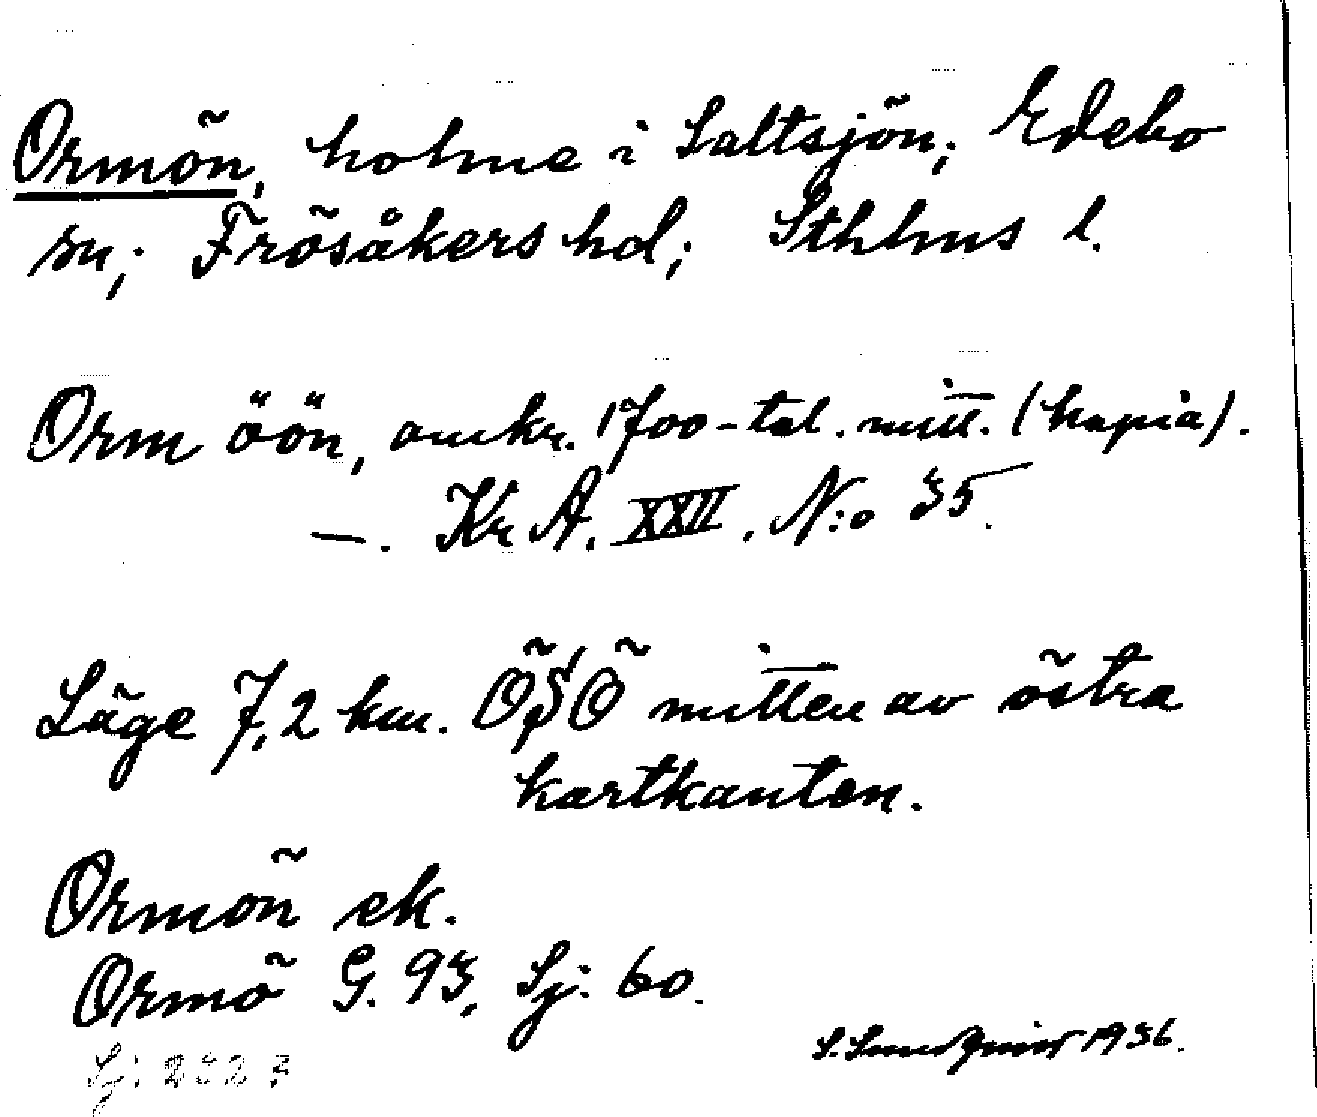 Ormön, holme i Saltsjön; Edebo
sn; Frösåkers hd; Sthlms l.
Orm öön, omkr. 1700-tal. mitt. (kopia).
—. Kr A. XXII. N:o 35.
Läge 7,2 km. ÖSÖ mitten av östra
kartkanten.
Ormön ek.
Ormö G. 93, Sj: 60.
S. Sundqvist 1936.
Sj: